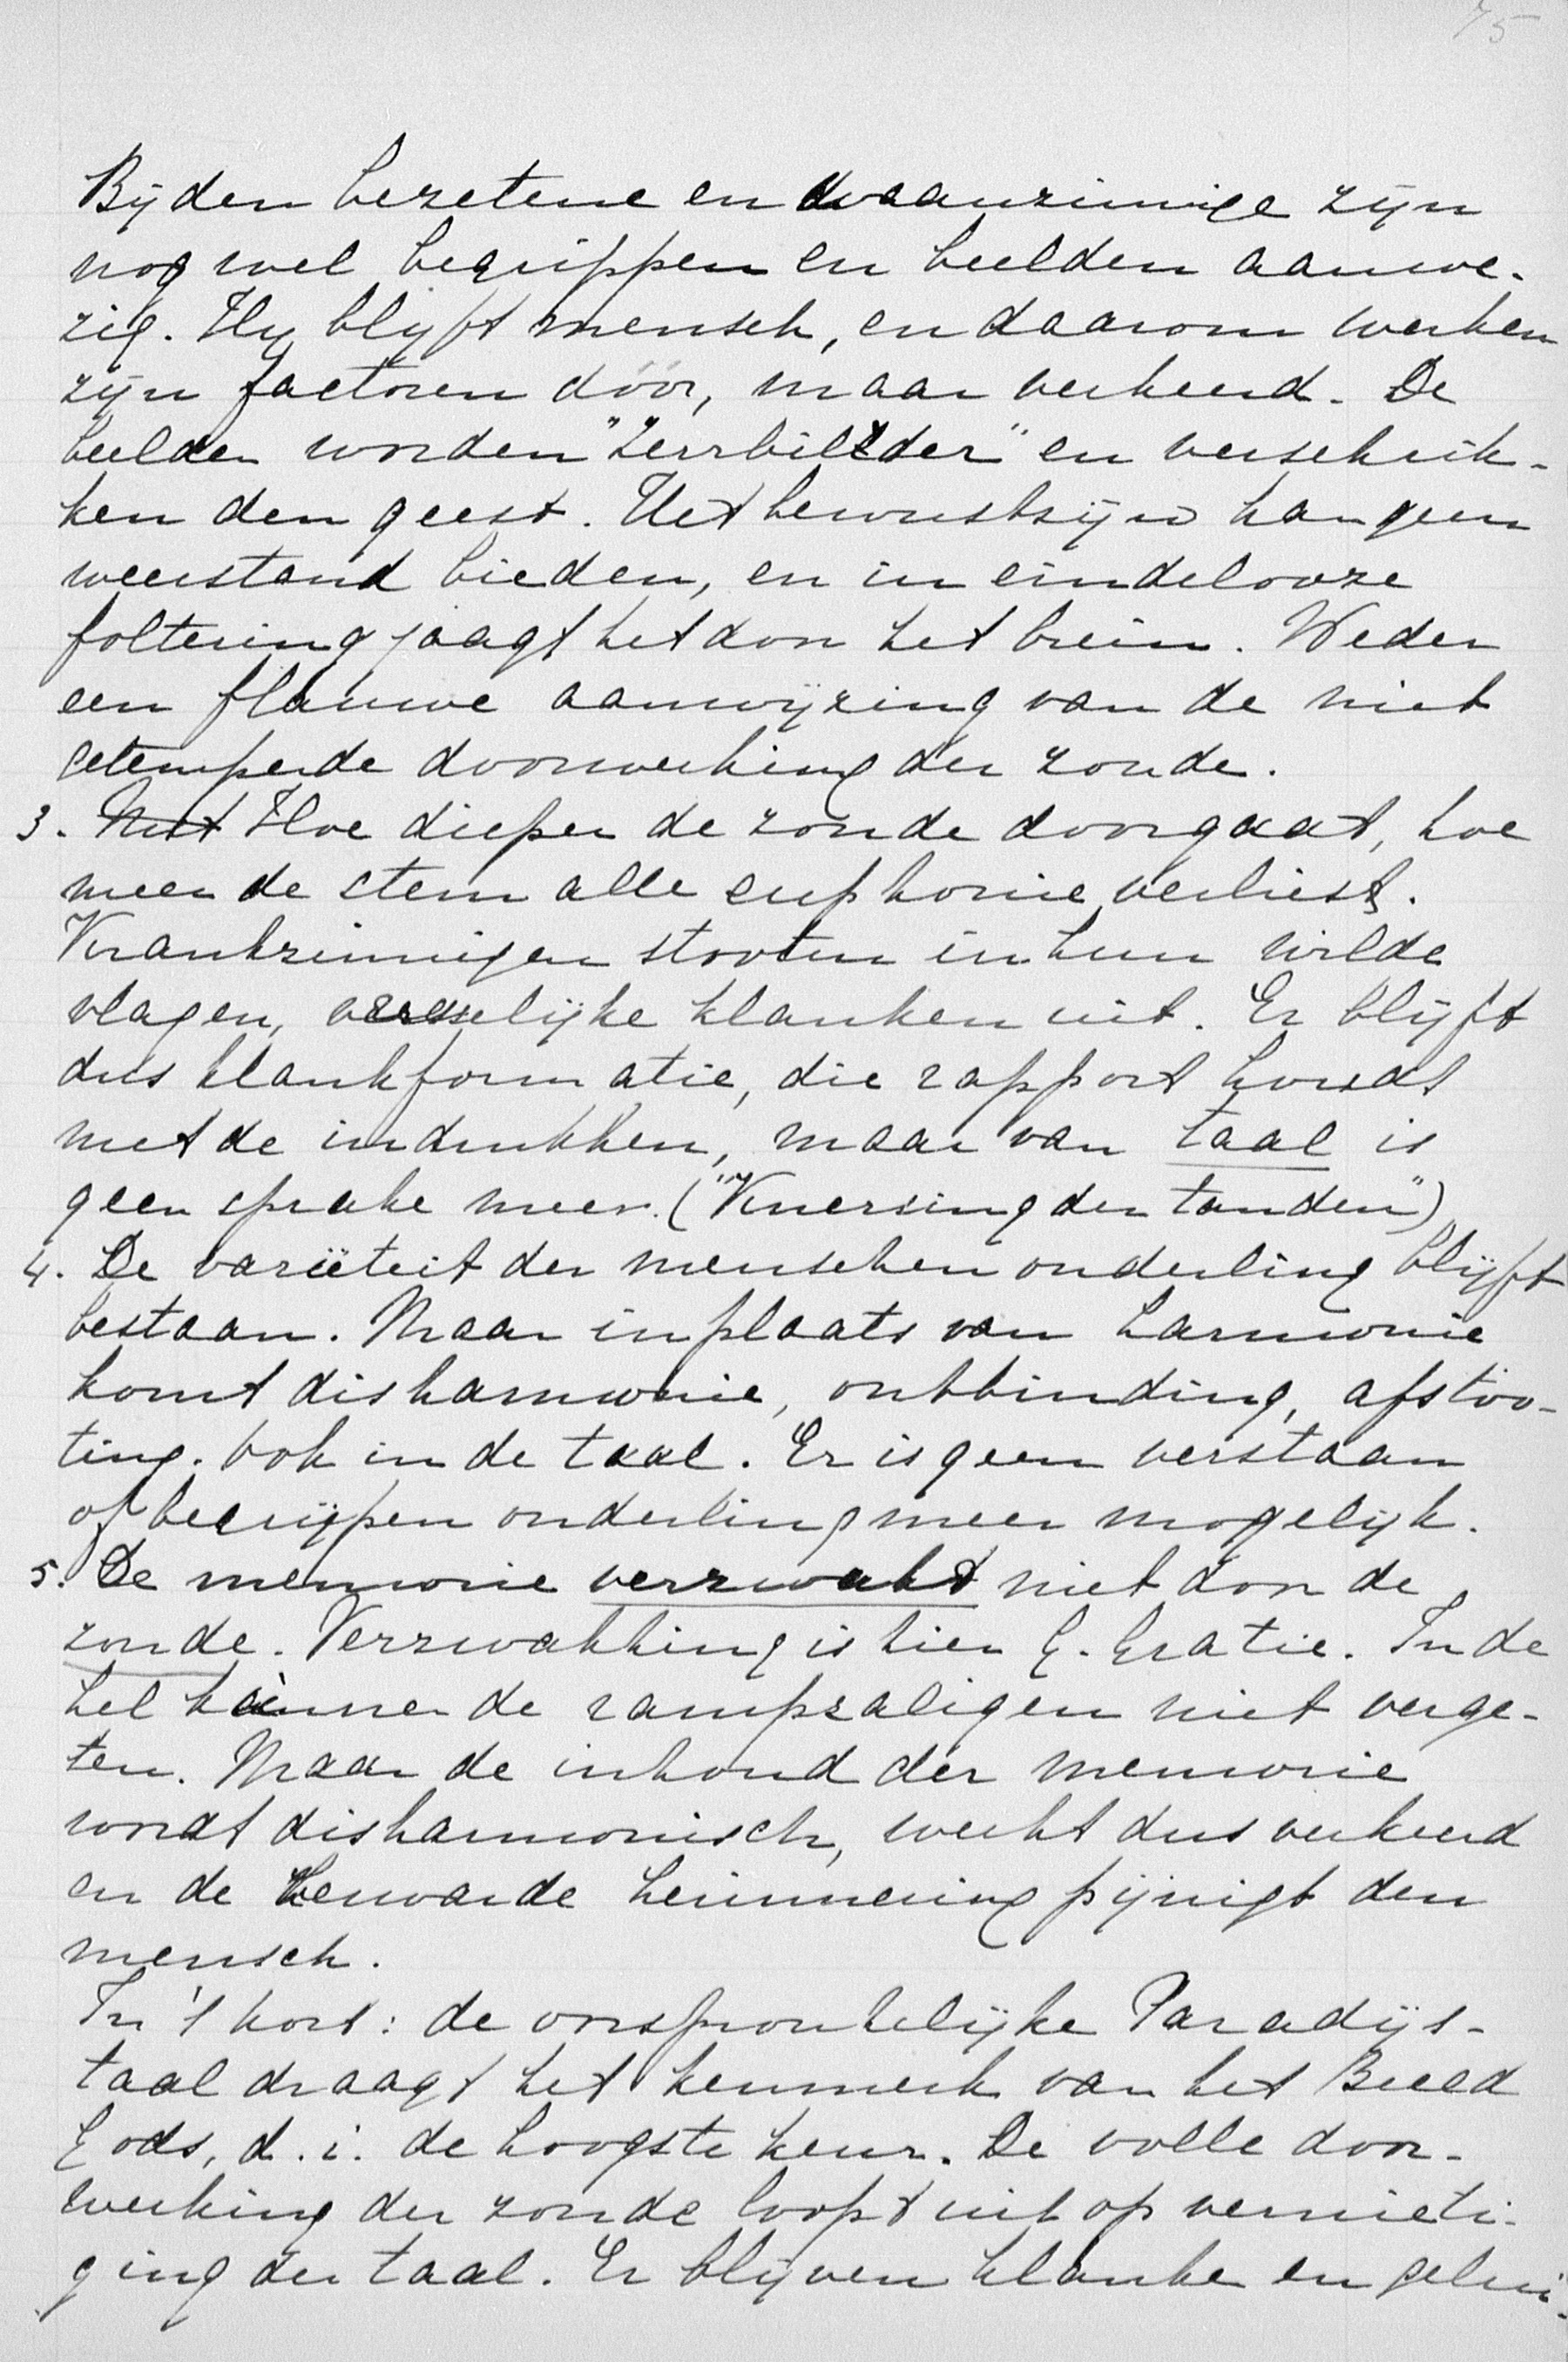 75
Bij den bezetene en dwaanzinnige zijn
nog wel begrippen en beelden aanwe-
zig. Hij blijft mensch, en daarom werken
zijn factoren dóór, maar verkeerd. De
beelden worden "Zerrbilder" en verschrik-
ken den geest. Het bewustzijn kan geen
weerstand bieden, en in eindelooze
foltering jaagt het door het brein. Weder
een flauwe aanwijzing van de niet
getemperde doorwerking der zonde.
3. Niet Hoe dieper de zonde doorgaat, hoe
meer de stem alle euphonie verliest.
Krankzinnigen stooten in hun wilde
vlagen, vreeselijke klanken uit. Er blijft
dus klankformatie, die rapport houdt
met de indrukken, maar van taal is
geen sprake meer. ("Knersing der tanden")
4. De variëteit der menschen onderling blijft
bestaan. Maar in plaats van harmonie
komt disharmonie, ontbinding, afstoo-
ting. Ook in de taal. Er is geen verstaan
of begrijpen onderling meer mogelijk.
5. De memorie verzwakt niet door de
zonde. Verzwakking is hier G. Gratie. In de
hel kùnnen de rampzaligen niet verge-
ten. Maar de inhoud der memorie
wordt disharmonisch, werkt dus verkeerd
en de bewaarde herinnering pijnigt den
mensch.
In 't kort: de oorspronkelijke Paradijs-
taal draagt het kenmerk van het Beeld
Gods, d.i. de hoogste keur. De volle door-
werking der zonde loopt uit op vernieti-
ging der taal. Er blijven klanken en gelui-